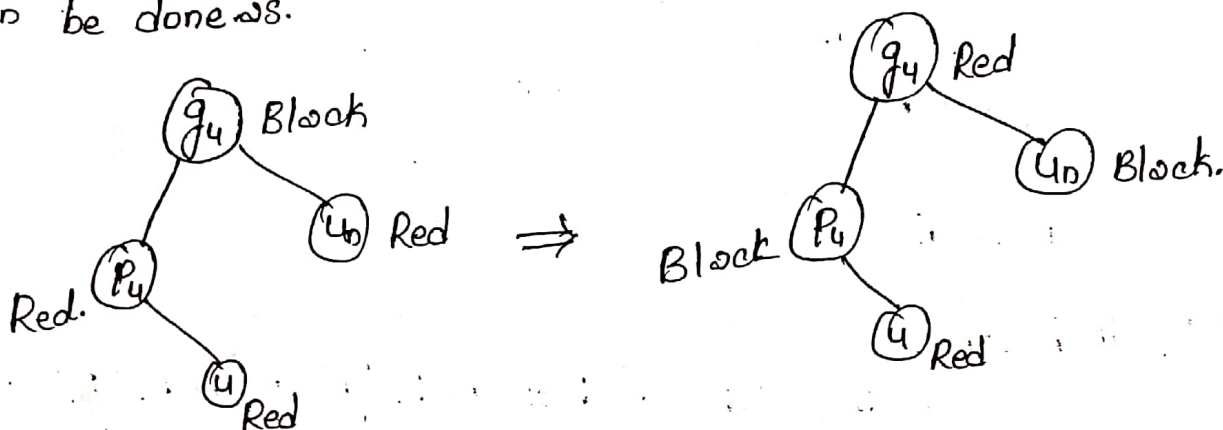 n be done as.
gu Black
Pu
Red.
un Red
u
Red
⇒
gu Red
un Black.
Black Pu
u
Red